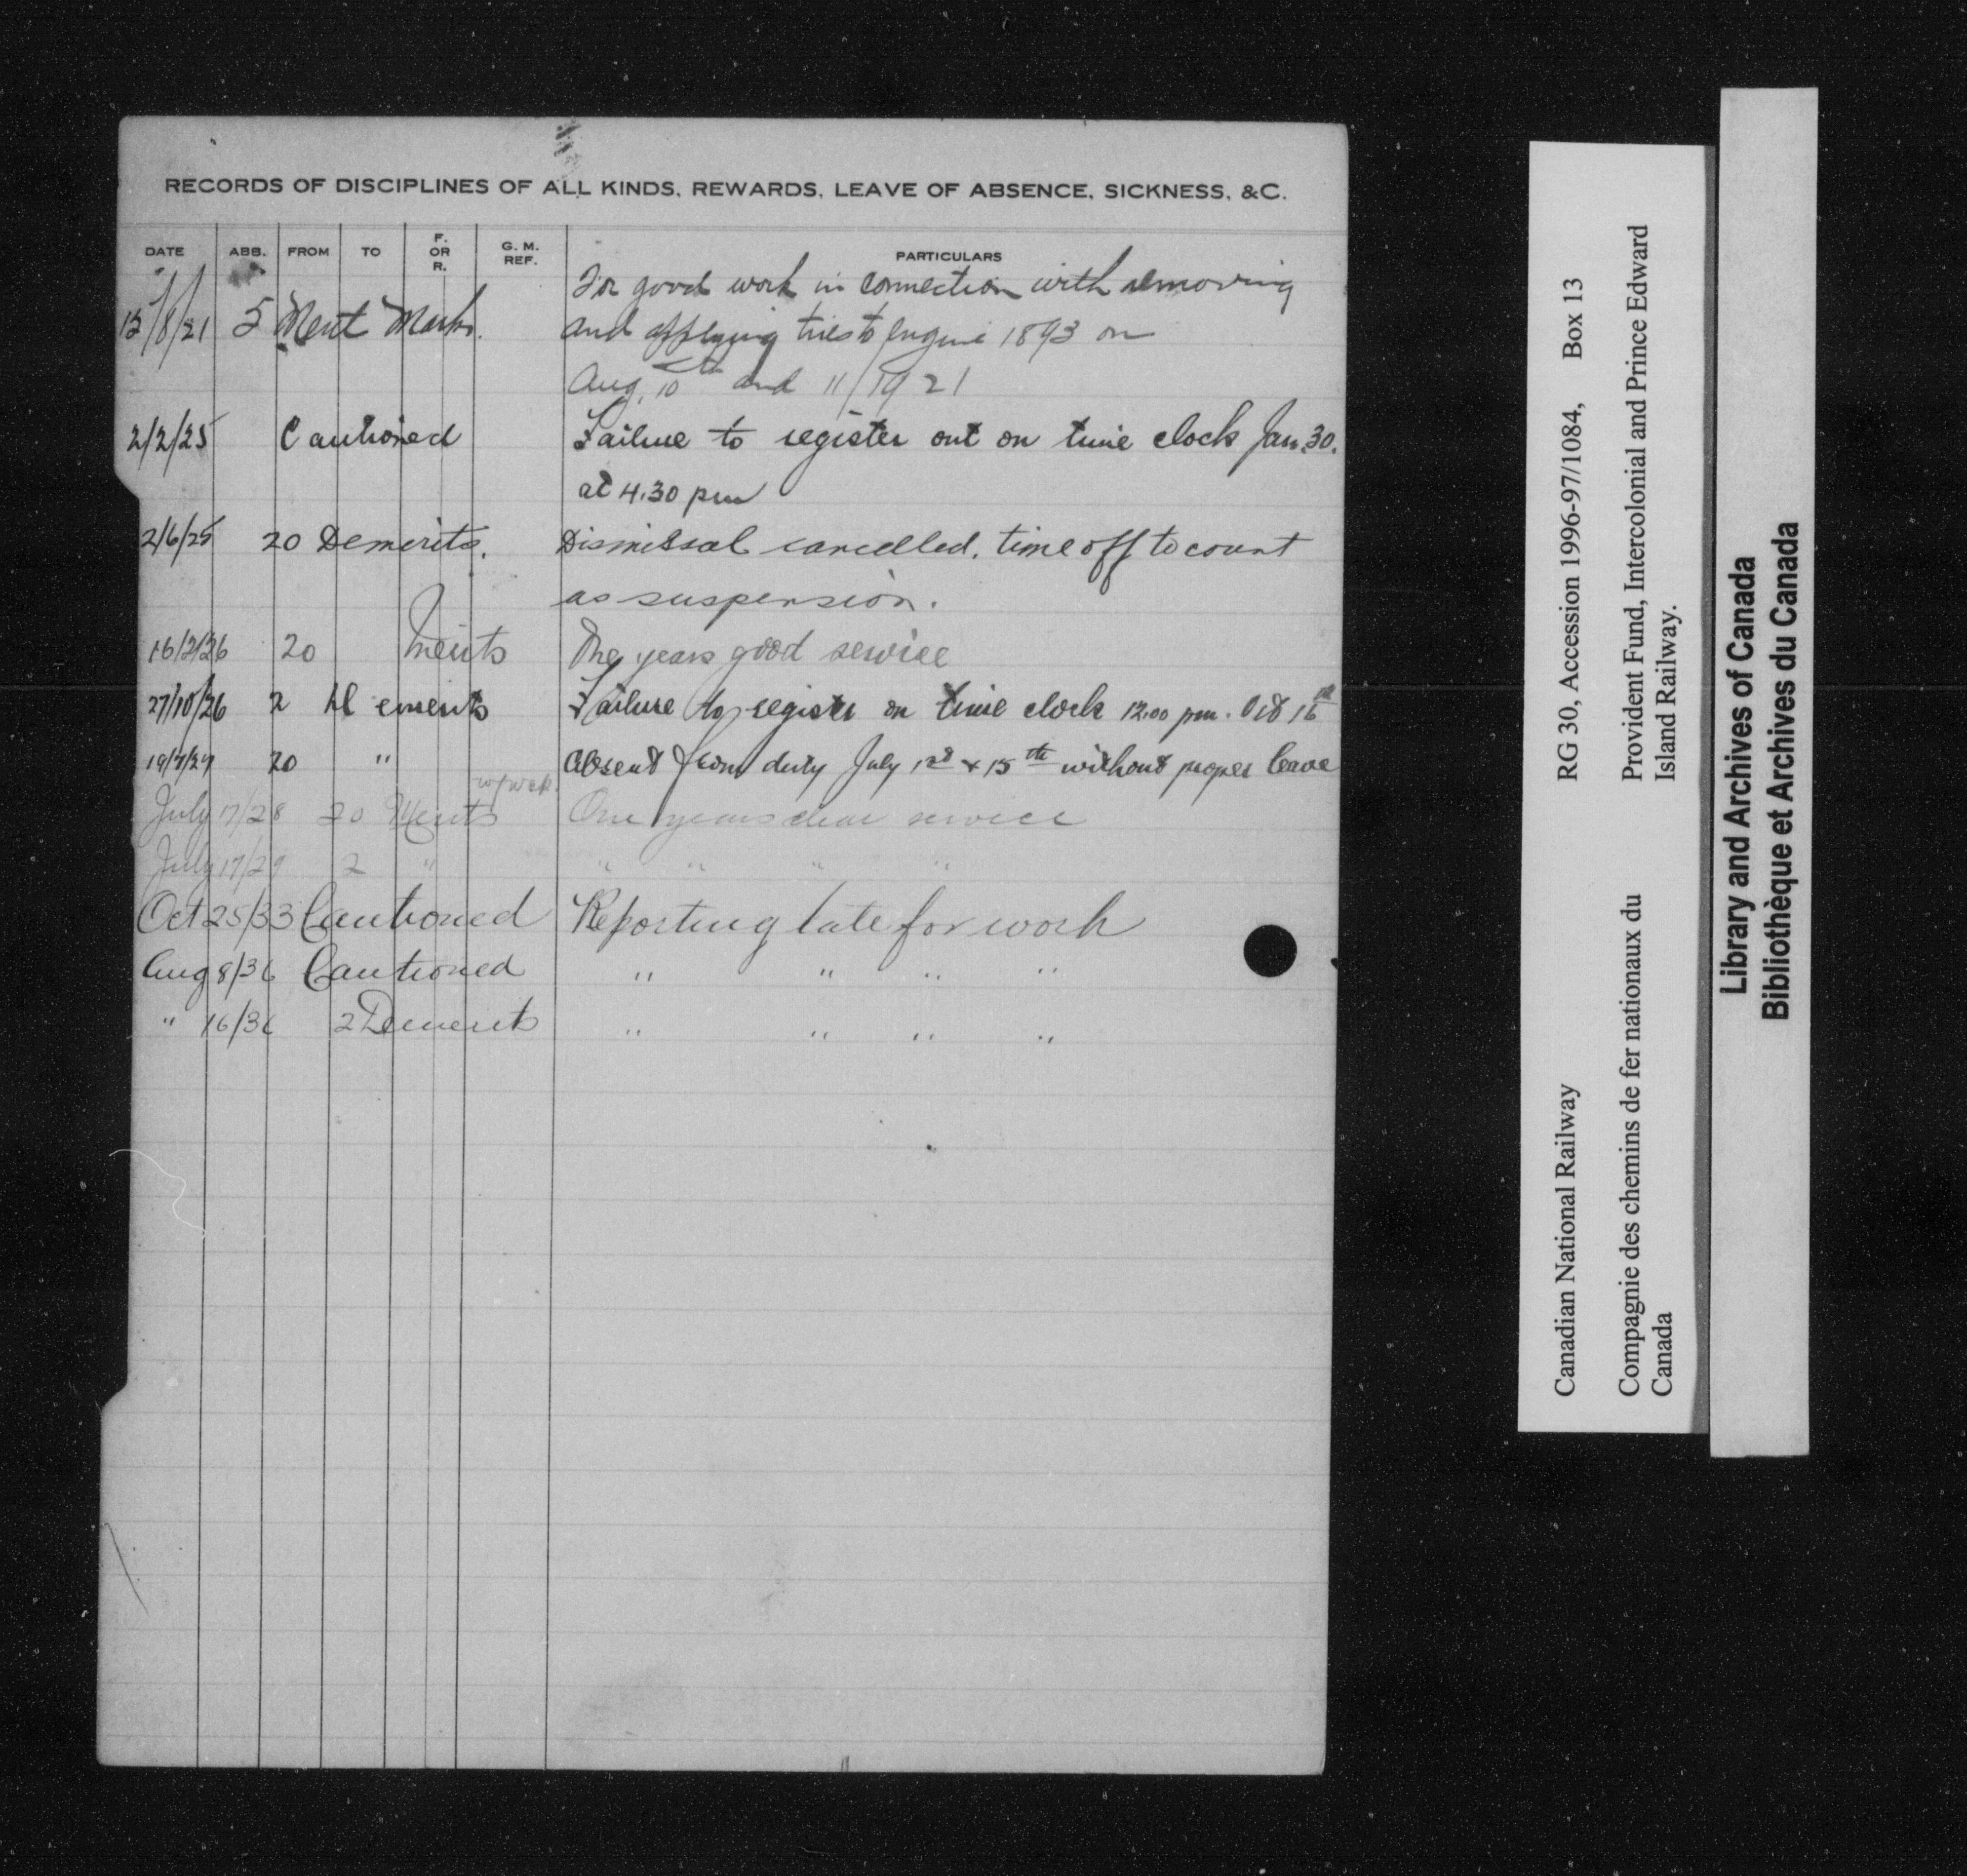 RECORDS OF DISCIPLINES OF ALL KINDS, REWARDS, LEAVE OF ABSENCE, SICKNESS, &C.
DATE ABB. FROM TO F. OR R. G. M. REF. PARTICULARS
For good work in connection with removing
12/8/21 5 Merit Marks. and applying tires to Engine 1893 on
Aug. 10th and 11/1921
2/2/25 Cautioned Failure to register out on time clock Jan. 30.
at 4.30 pm
2/6/25 20 Demerits. Dismissal cancelled, time off to count
as suspension.
16/2/26 20 Merits One years good service
27/10/26 2 Demerits Failure to register on time clock 12.00 pm. Oct 16th
19/7/27 20 " Absent from duty July & 15th without proper leave
July 17/28 20 Merits One years clear service
July 17/29 2 " " " " "
Oct 25/33 Cautioned Reporting late for work
Aug 8/36 Cautioned " " " "
" 16/36 2 Demerits " " " "
RG 30, Accession 1996-97/1084, Box 13
Canadian National Railway
Provident Fund, Intercolonial and Prince Edward
Island Railway.
Compagnie des chemins de fer nationaux du
Canada
Library and Archives of Canada
Bibliothèque et Archives du Canada